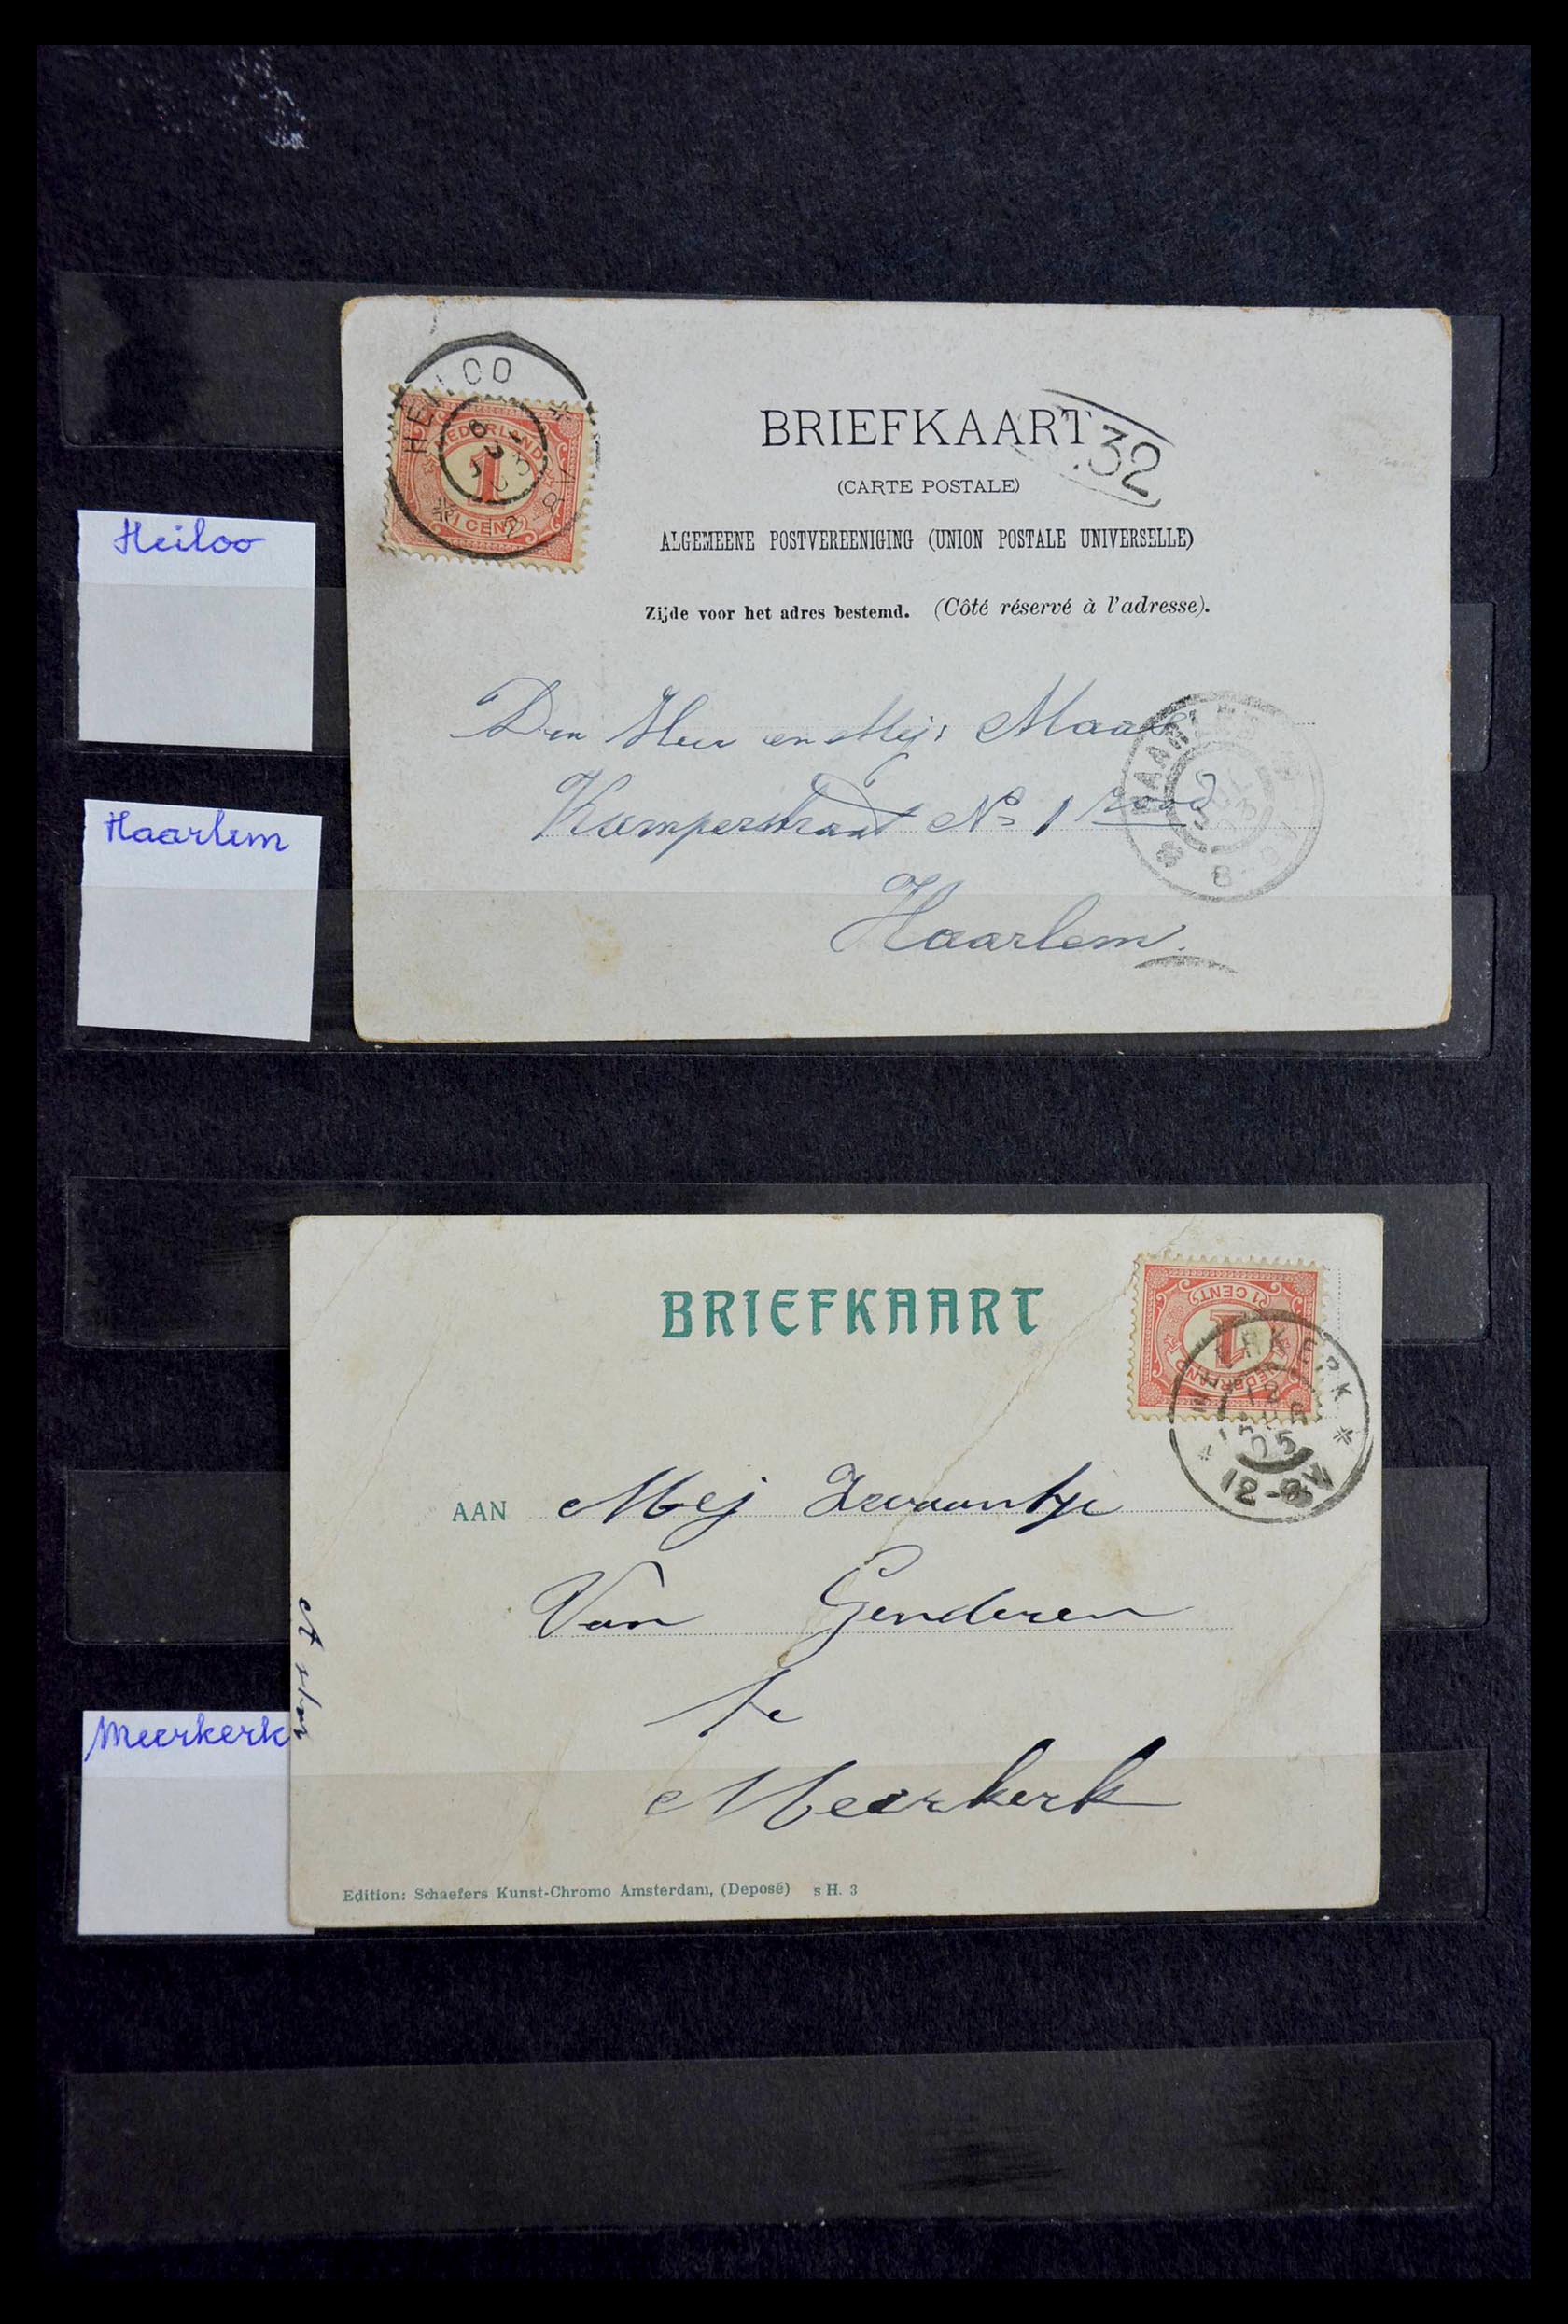 Heiloo
Haarlem
HEILOO
NEDERLAND
1
1 CENT
BRIEFKAART
32
(CARTE POSTALE)
ALGEMEENE POSTVEREENIGING (UNION POSTALE UNIVERSELLE)
Zijde voor het adres bestemd. (Côté réservé à l'adresse).
Den Heer en Mej:
Kamperstraat No 1 rood
Haarlem
HAARLEM
BRIEFKAART
1 CENT
1
NEDERLAND
MEERKERK
12 AUG
05
12-8V
AAN Mej Zwaantje
Van Genderen
te
Meerkerk
Meerkerk
Edition: Schaefers Kunst-Chromo Amsterdam, (Deposé) s H. 3